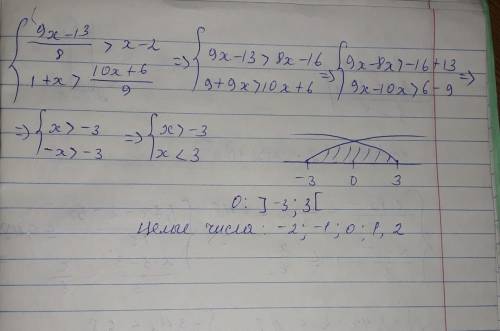 { (9x-13)/8 > x-2 ; 1+x > (10x+6)/9 => { 9x-13 > 8x-16 ; 9+9x > 10x+6 => { 9x-8x > -16+13 ; 9x-10x > 6-9 =>
=> { x > -3 ; -x > -3 => { x > -3 ; x < 3
-3 0 3
O: ]-3; 3[
Целые числа: -2; -1; 0; 1, 2